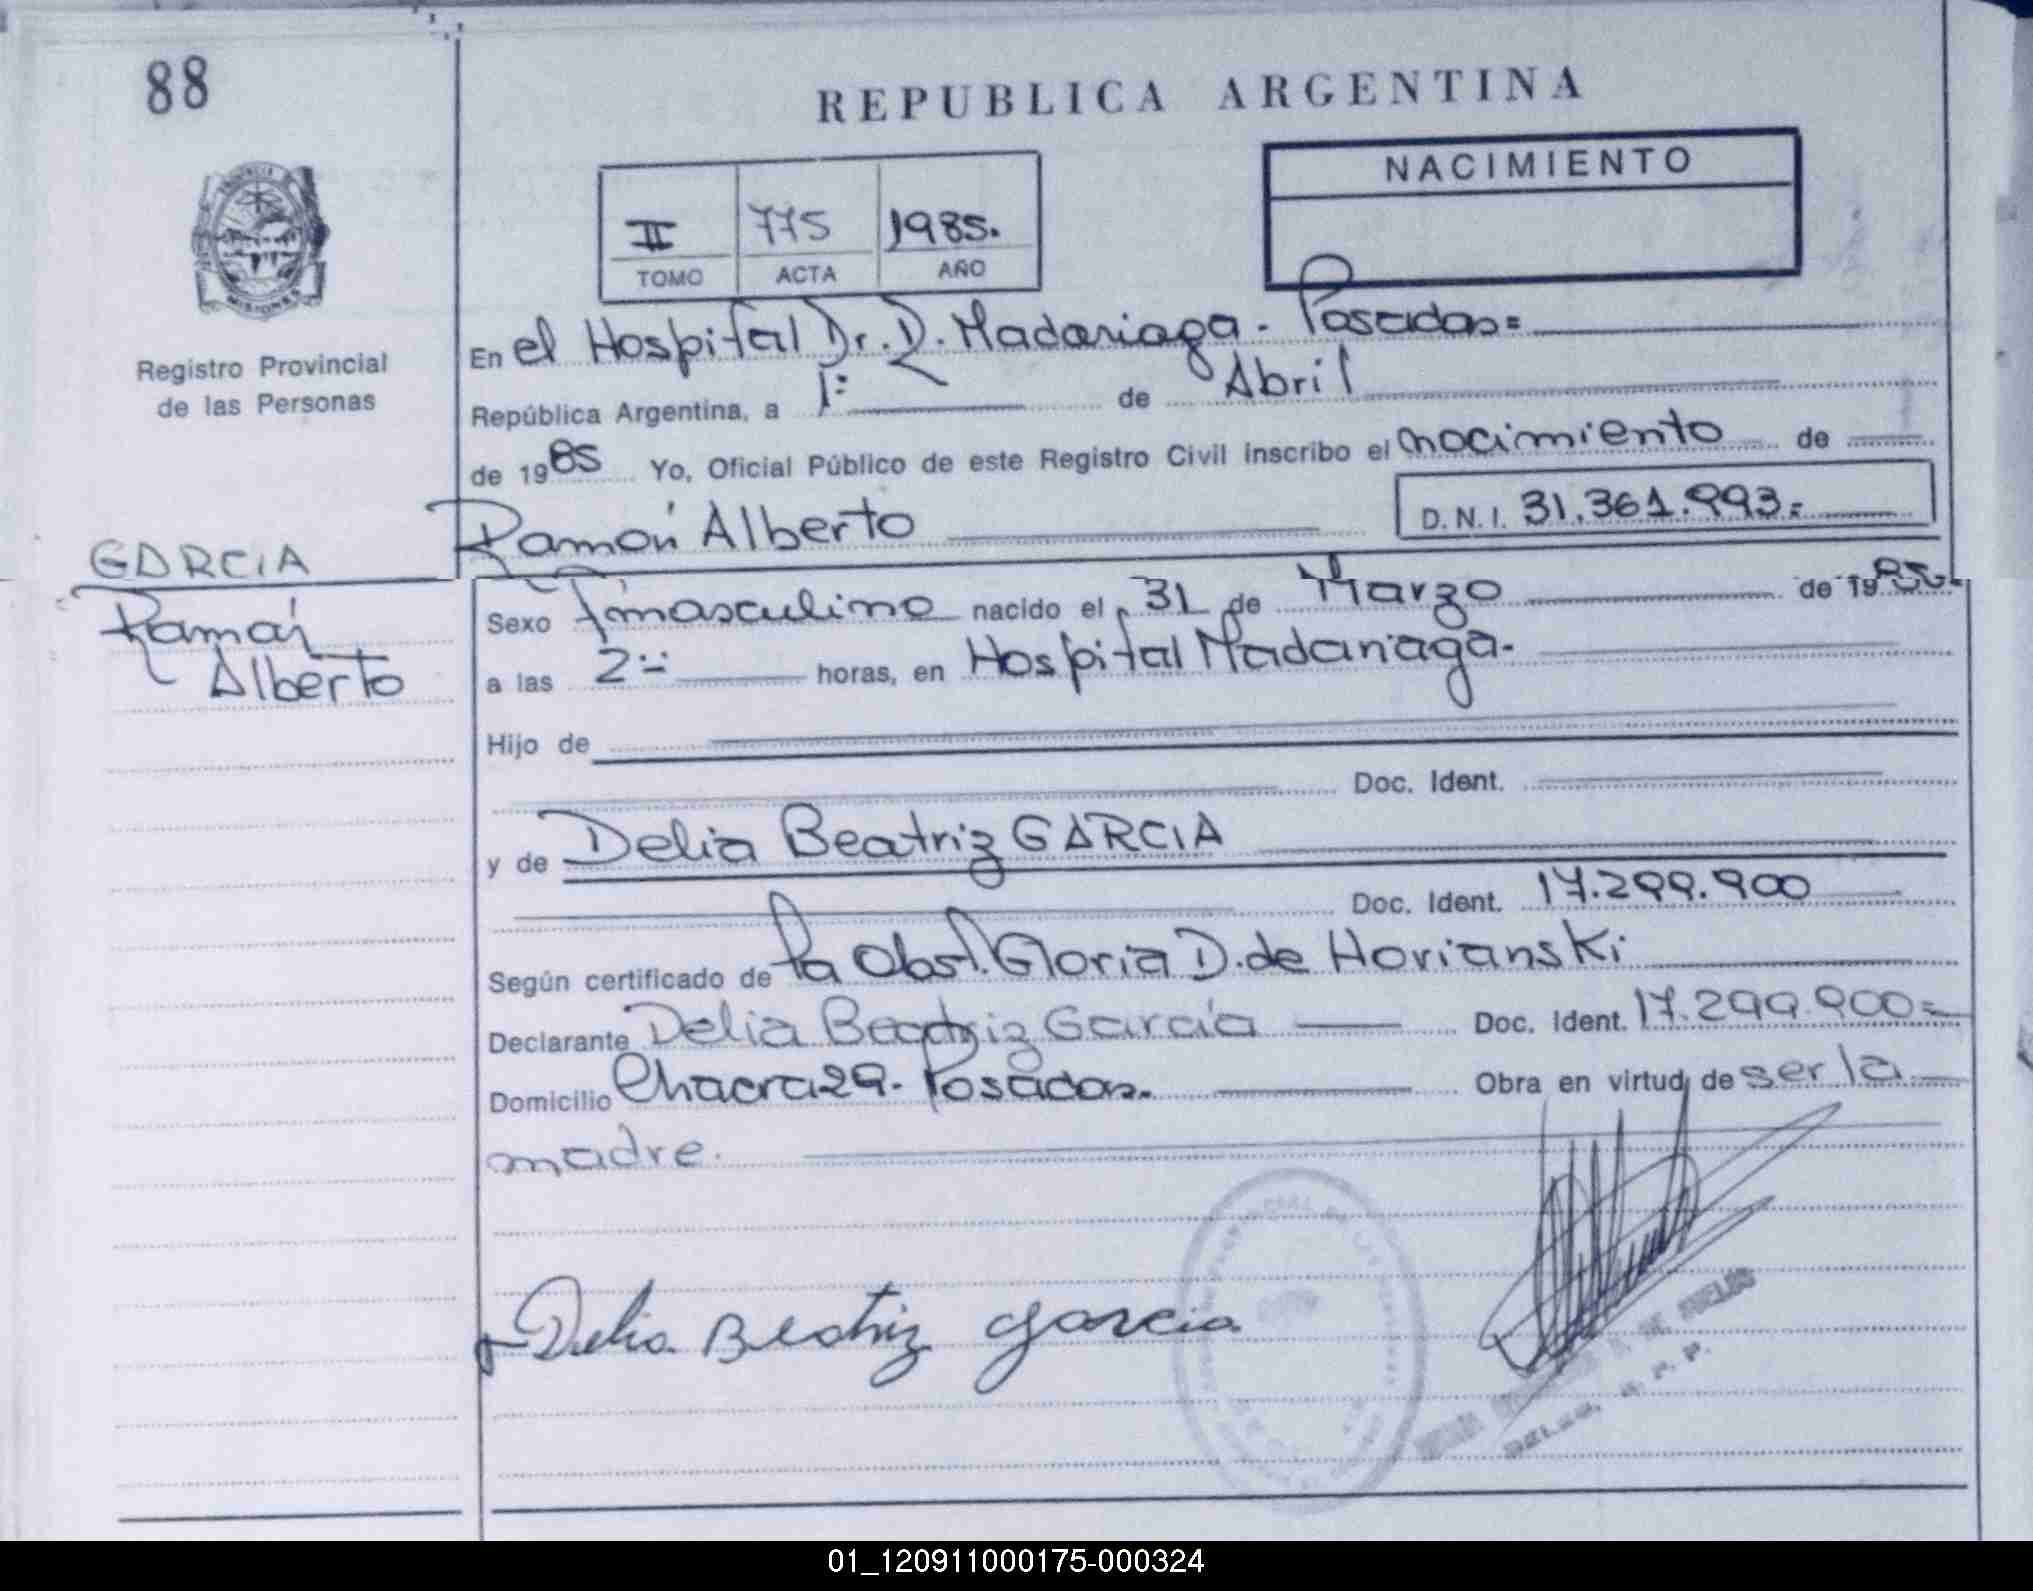 88
REPUBLICA ARGENTINA
NACIMIENTO
II 775 1985.
TOMO ACTA AÑO
MISIONES
Registro Provincial
de las Personas
En el Hospital Dr. D. Madariaga - Posadas=
República Argentina, a 1º de Abril
de 1985 Yo, Oficial Público de este Registro Civil inscribo el nacimiento de
Ramón Alberto D.N.I. 31.361.993=
GARCIA
Ramón
Alberto
Sexo masculino nacido el 31 de Marzo de 1985=
a las 2 horas, en Hospital Madariaga.
Hijo de
Doc. Ident.
y de Delia Beatriz GARCIA
Doc. Ident. 17.299.900
Según certificado de la Obst. Gloria D. de Horianski
Declarante Delia Beatriz Garcia Doc. Ident. 17.299.900=
Domicilio Chacra 29. Posadas. Obra en virtud de ser la
madre.
Delia Beatriz Garcia
01_120911000175-000324